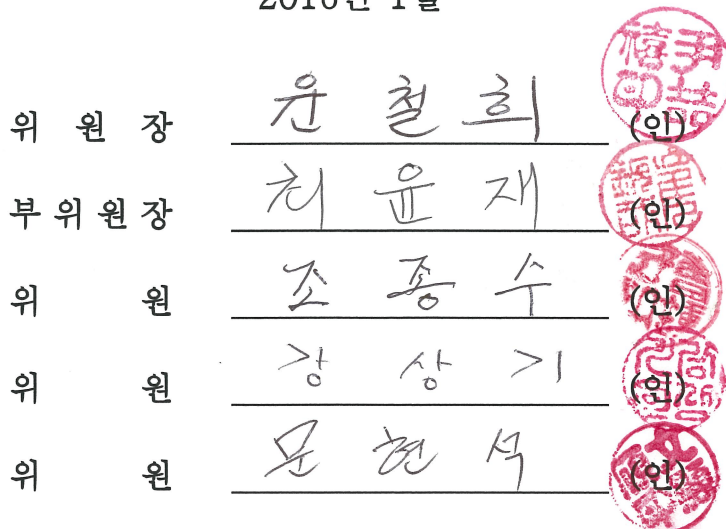 2016년 1월
위 원 장 윤 철 희 (인)
부 위 원 장 최 윤 재 (인)
위 원 조 종 수 (인)
위 원 강 상 기 (인)
위 원 문 현 석 (인)